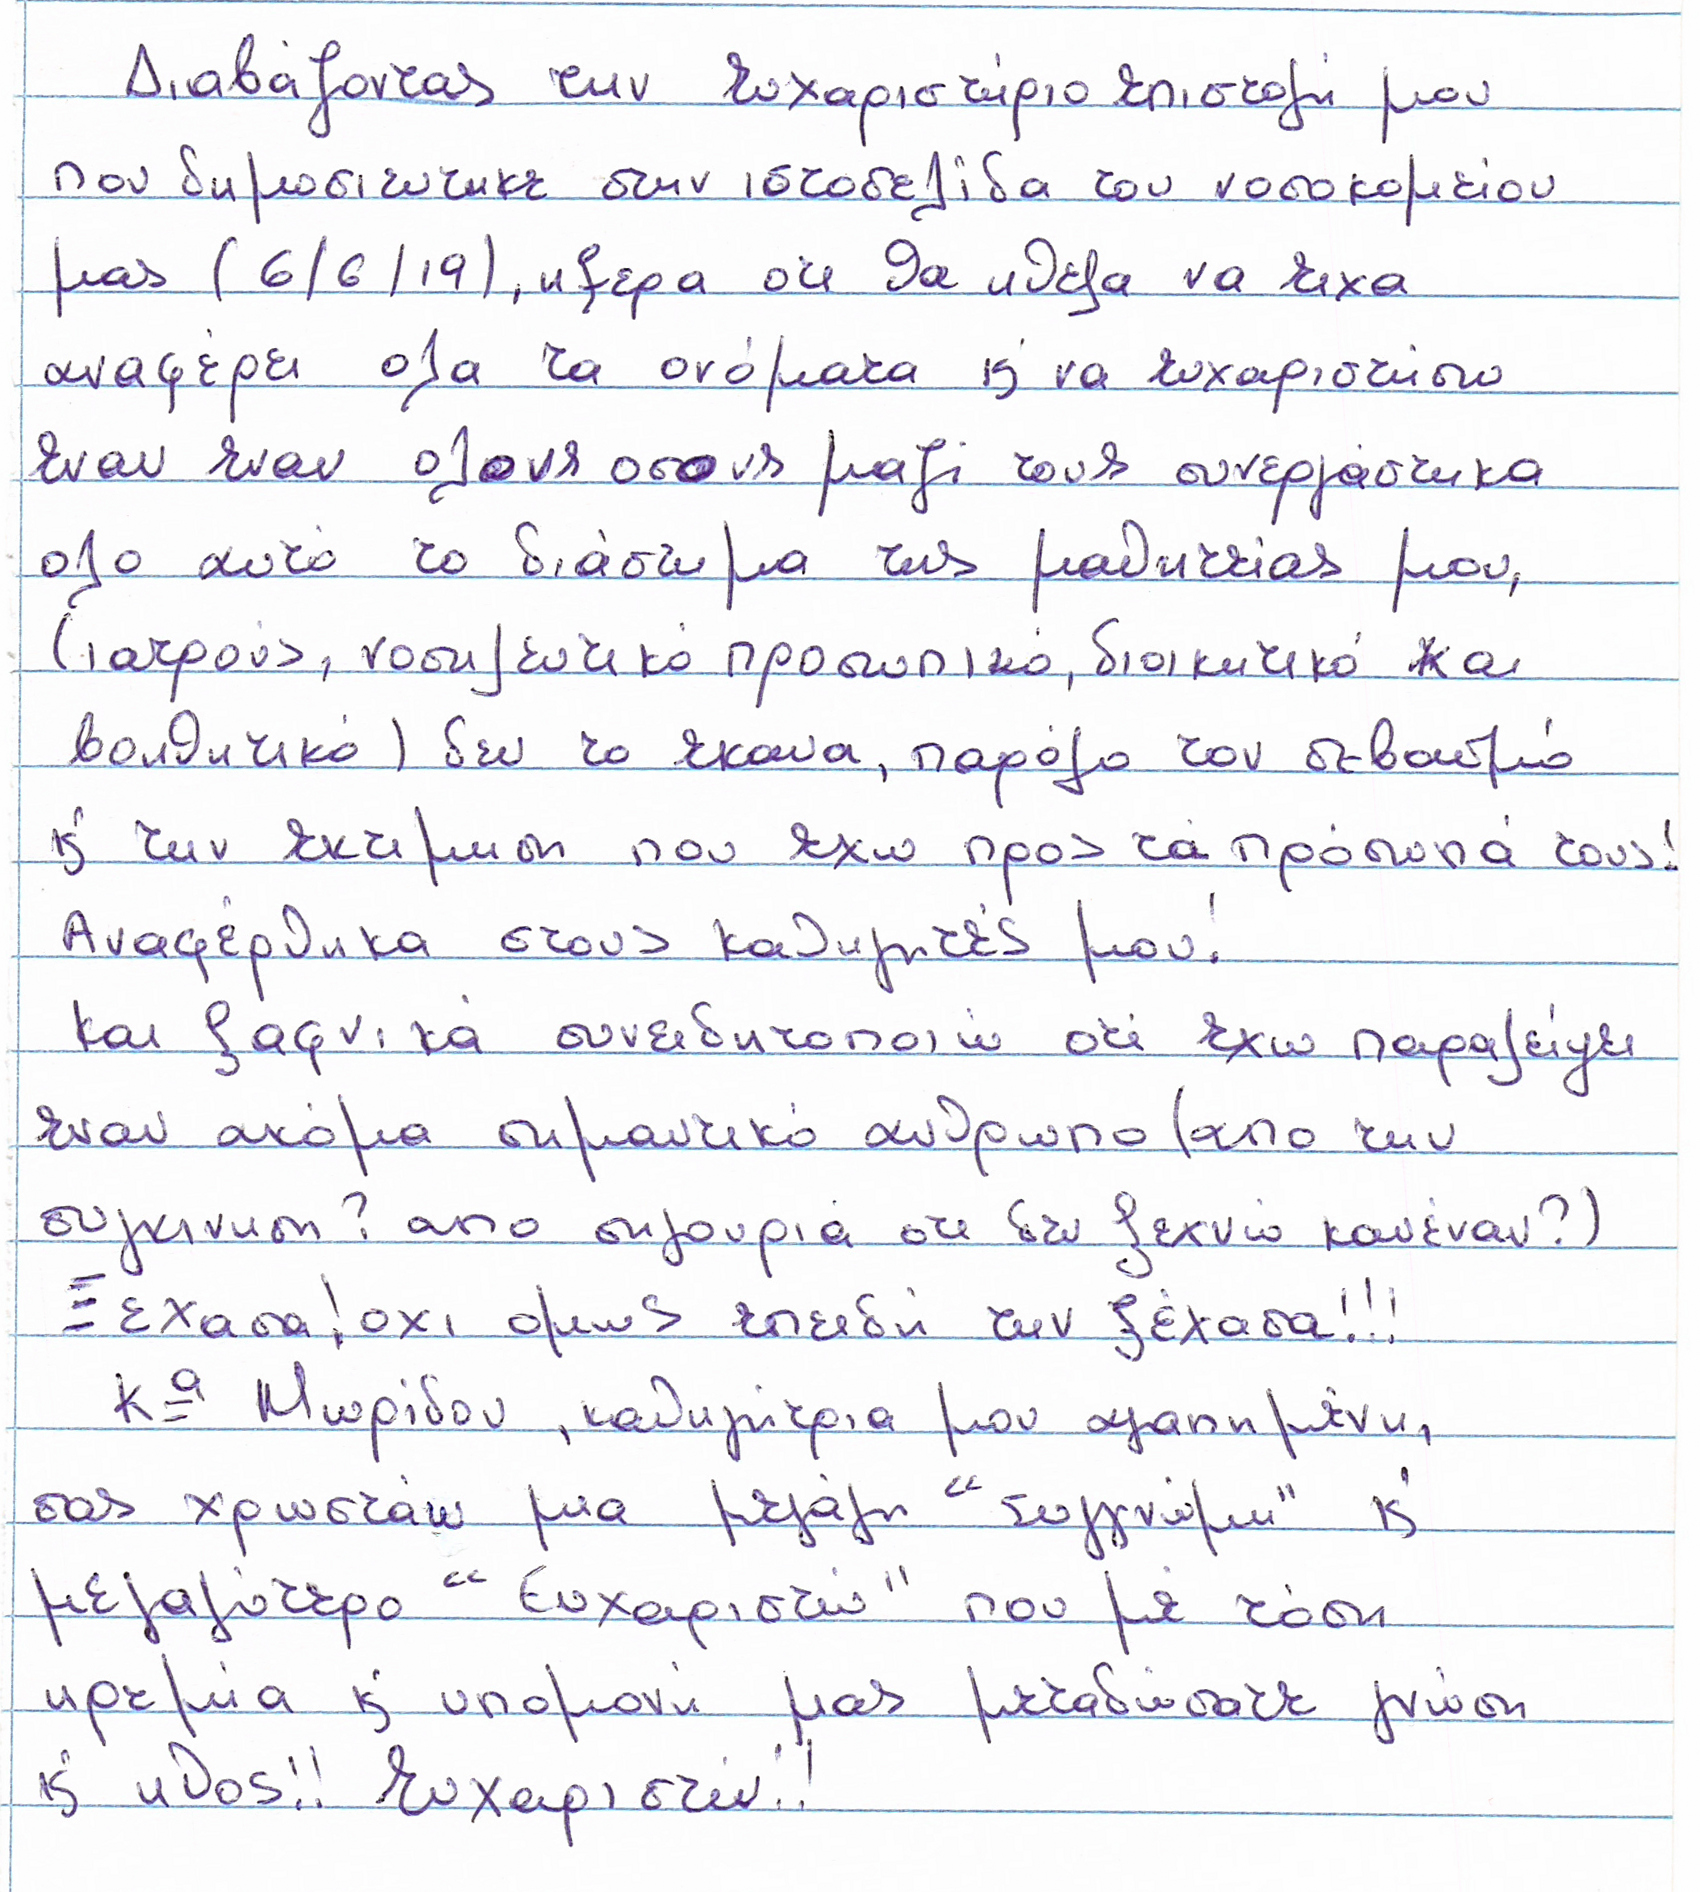 Διαβάζοντας την ευχαριστήριο επιστολή μου
που δημοσιευτηκε στην ιστοσελίδα του νοσοκομείου
μας (6/6/19), ηξερα οτι θα ηθελα να ειχα
αναφέρει ολα τα ονόματα κ' να ευχαριστήσω
εναν εναν ολους οσους μαζί τους συνεργάστηκα
ολο αυτό το διάστημα της μαθητείας μου,
(ιατρούς, νοσηλευτικό προσωπικό, διοικητικό και
βοηθητικό) δεν το εκανα, παρόλο τον σεβασμό
κ' την εκτιμηση που εχω προς τά πρόσωπά τους!
Αναφέρθηκα στους καθηγητές μου!
Και ξαφνικά συνειδητοποιώ οτι εχω παραλείψει
εναν ακόμα σημαντικό ανθρωπο (απο την
συγκινηση? απο σηγουριά οτι δεν ξεχνώ κανέναν?)
Ξεχασα! οχι ομως επειδή την ξέχασα!!!
Κα Μωρίδου, καθηγήτρια μου αγαπημένη,
σας χρωστάω μια μεγάλη "Συγγνώμη" κ'
μεγαλύτερο "Ευχαριστώ" που με τόση
ηρεμία κ' υπομονή μας μεταδώσατε γνώση
κ' ηθος!! Ευχαριστώ!!